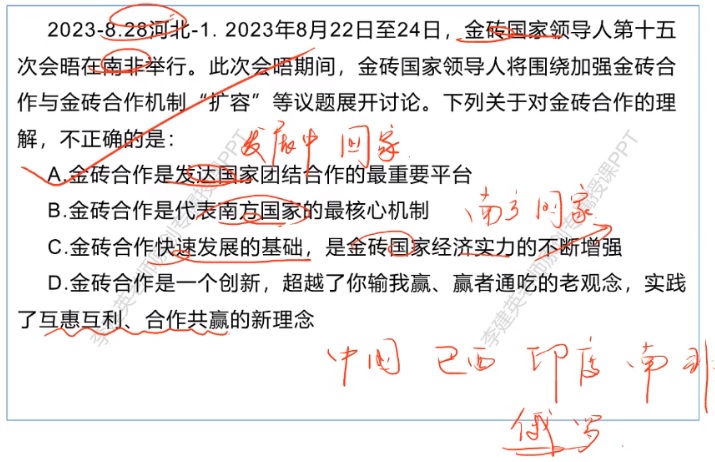 2023-8.28河北-1. 2023年8月22日至24日，金砖国家领导人第十五
次会晤在南非举行。此次会晤期间，金砖国家领导人将围绕加强金砖合
作与金砖合作机制“扩容”等议题展开讨论。下列关于对金砖合作的理
解，不正确的是：
发展中国家
A.金砖合作是发达国家团结合作的最重要平台
B.金砖合作是代表南方国家的最核心机制
南方国家
C.金砖合作快速发展的基础，是金砖国家经济实力的不断增强
D.金砖合作是一个创新，超越了你输我赢、赢者通吃的老观念，实践
了互惠互利、合作共赢的新理念
中国 巴西 印度 南非
俄罗